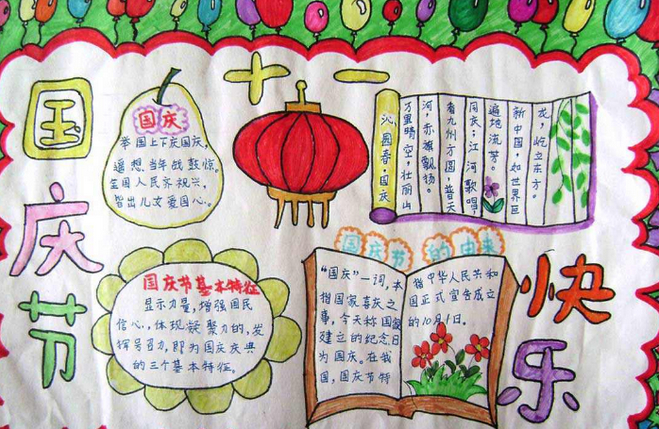 国庆节
十一
快乐
国庆
举国上下庆国庆,
遥想当年战鼓惊。
全国人民齐祝兴,
皆出儿女爱国心。
沁园春·国庆
万里晴空,壮丽山
河,赤旗飘扬。
看九州方圆,普天
同庆;江河歌唱
遍地流芳。
新中国,如世界巨
龙,屹立东方。
国庆节基本特征
显示力量,增强国民
信心,体现凝聚力的,发
挥号召力,即为国庆庆典
的三个基本特征。
国庆节的由来
“国庆”一词,本
指国家喜庆之
事,今天称国家
建立的纪念日
为国庆。在我
国,国庆节特
指中华人民共和
国正式宣告成立
的10月1日。